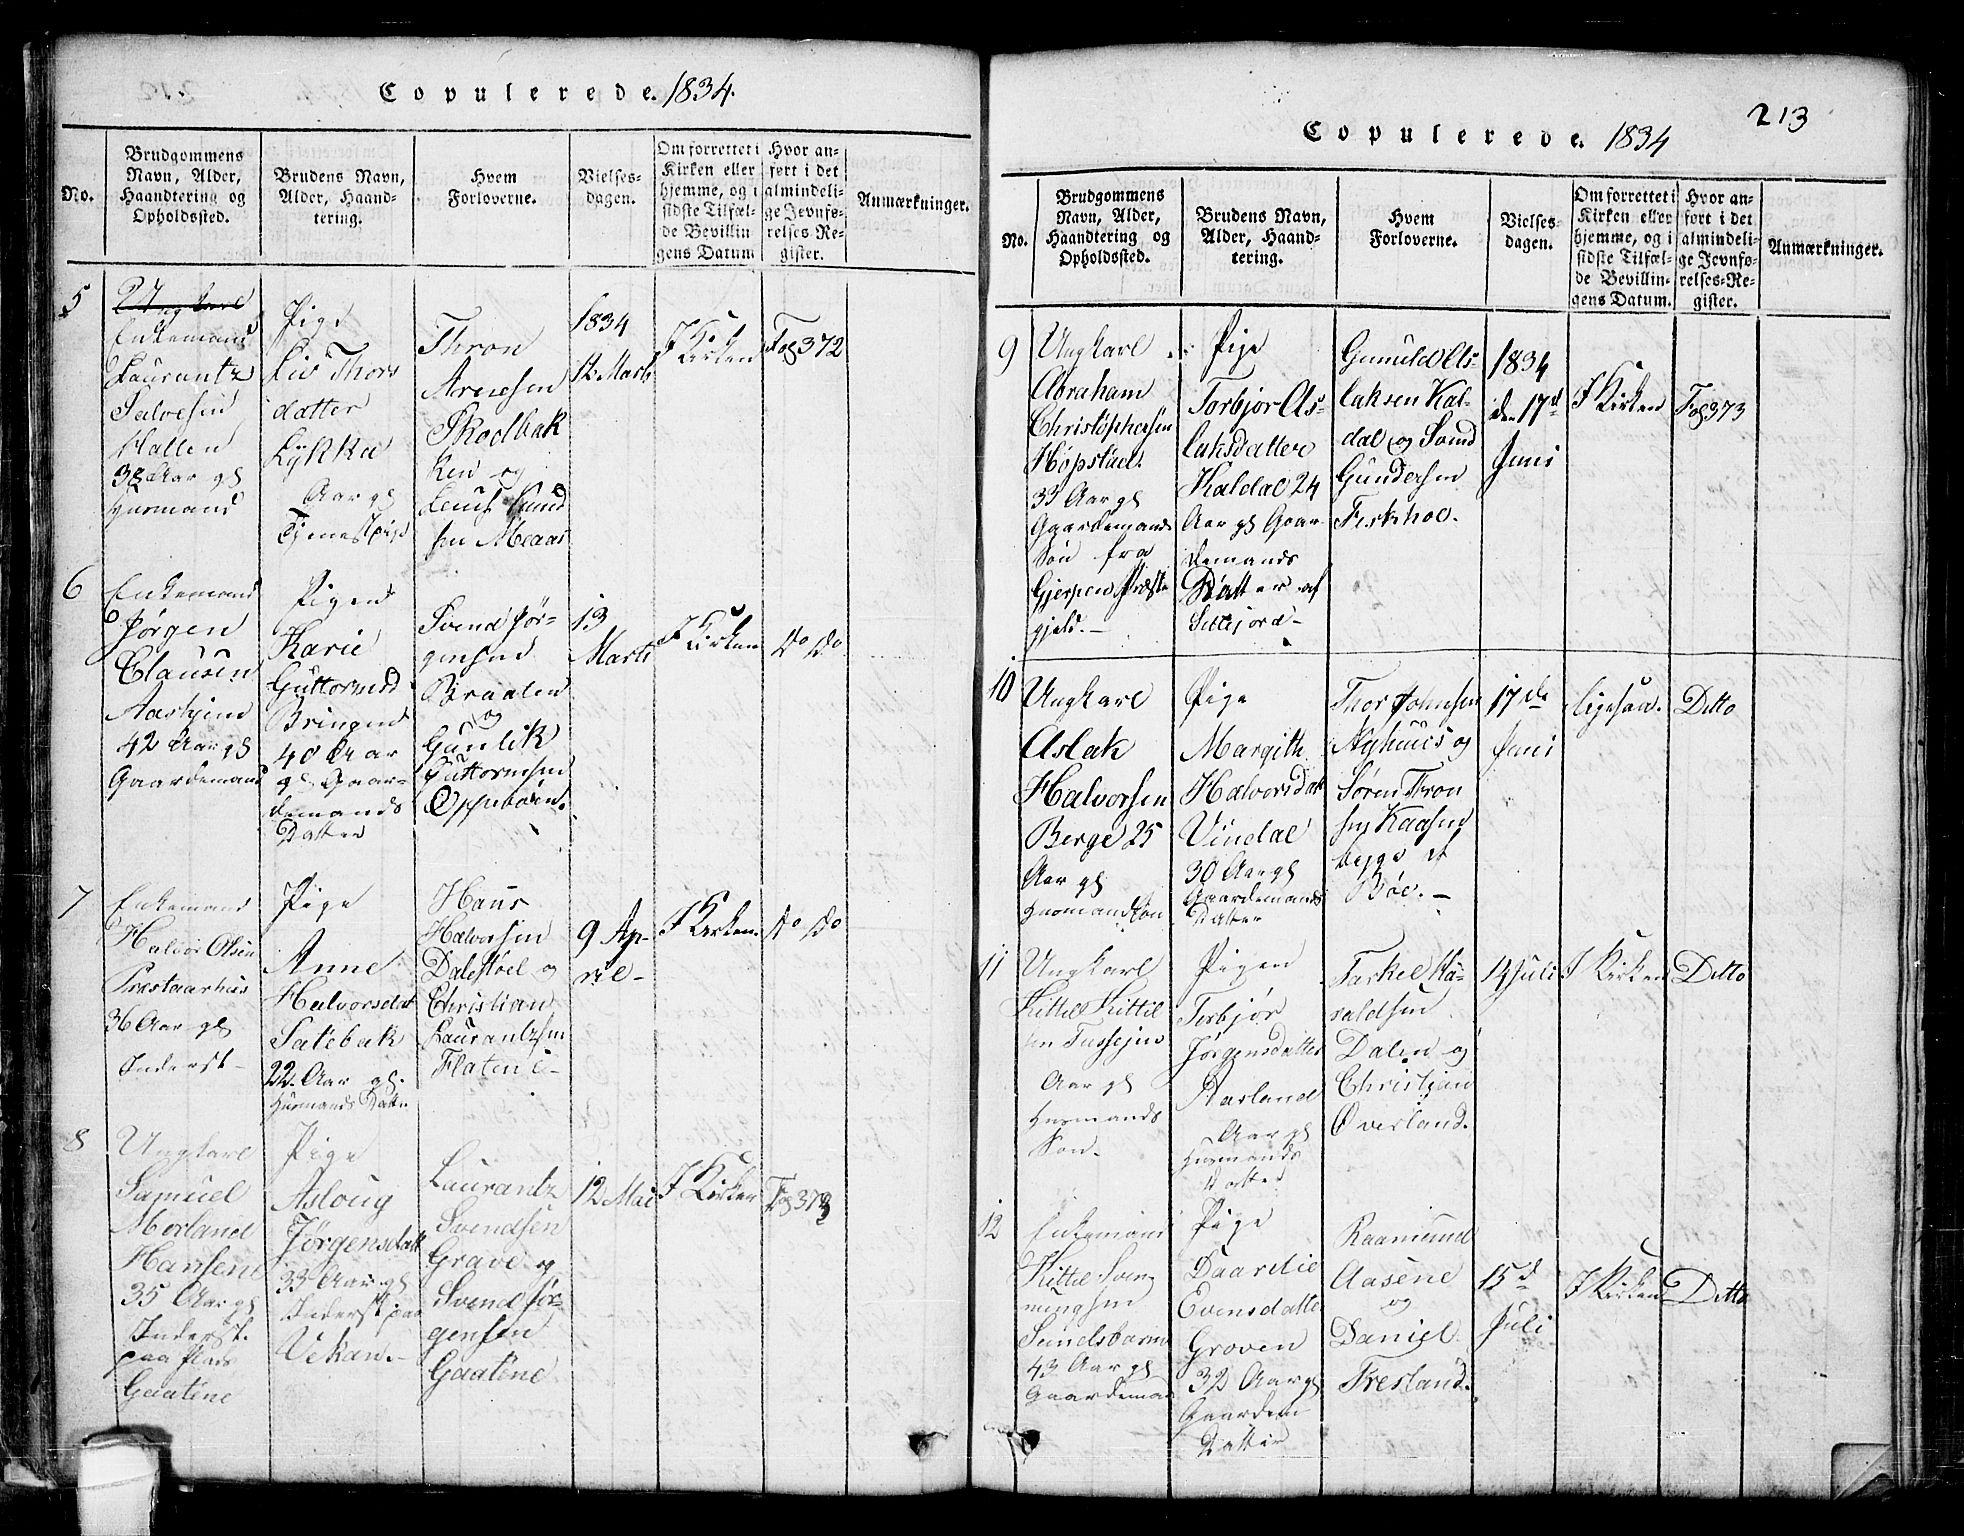 Copulerede. 1834.
No.
Brudgommens
Navn, Alder,
Haandtering og
Opholdssted.
Brudens Navn,
Alder, Haand-
tering.
Hvem
Forloverne.
Vielses-
dagen.
Om forrettet i
Kirken eller
hjemme, og i
sidste Tilfæl-
de Bevillin
gens Datum
Hvor an-
ført i det
almindeli-
ge Jevnfø-
relses Re-
gister.
Anmærkninger.
5
Ungkarl
Enkemand
Laurantz
Salvesen
Hallen
38 Aar gl
Huusmand
Pige
Liv Thors
datter
Lykka
Aar gl
Tjenestpige
Thron
Arnesen
Skodbak
ken og
sen Maaar
1834
12 Marts
I Kirken
Fog 372
6
Enkemand
Jørgen
Clausen
42 Aar gl
Gaardemand
Pigen
Karie
Guttormsd
Bringen
40 Aar
gl Gaar-
demands
Datter
Svend Jør-
gensen
Braaten
og
Gunlik
Guttormsen
Oppeboen.
13
Marts
I Kirken
do do
7
Enkemand
Halvor Olsen
Prestaarhus
36 Aar gl
Inderst
Pige
Anne
Halvorsdat
Satebak
22 Aar gl.
Huusmands Datter
Hans
Halvorsen
Dalestøel og
Christian
Laurantzsen
Flaten i-
9 Ap-
ril-
I Kirken.
do do
8
Ungkarl
Samuel
Morland
Hansen
35 Aar gl
Inderst.
paa Plads
Gaatene
Pige
Aslaug
Jørgensdatt
33 Aar gl
Inderst paa
Vekan.-
Laurantz
Svendsen
Grave og
Svend Jør-
gensen
Gaatene
12 Mai
I Kirken
Fog 373
213
Copulerede. 1834
No.
Brudgommens
Navn, Alder,
Haandtering og
Opholdssted.
Brudens Navn,
Alder, Haand-
tering.
Hvem
Forloverne.
Vielses-
dagen.
Om forrettet i
Kirken eller
hjemme, og i
sidste Tilfæl-
de Bevillin-
gens Datum.
Hvor an-
ført i det
almindeli-
ge Jevnfø-
relses-Re-
gister.
Anmærkninger.
9
Ungkarl
Abraham
Christophersen
Høpstad.
33 Aar gl
Gaardemands
Søn fra
Gjerpen Præste
gjeld.-
Pige
Torbjør As-
laksdatter
Kaldal 24
Aar gl Gaar
demands
Datter af
Gunuld As-
laksen Kal-
dal og Svend
Gundersen
Fiskhol.
1834
den 17d
Juni
I Kirken
Fog 373
10
Ungkarl
Aslak
Halvorsen
Berge 25
Aar gl
Huusmands Søn
Pige
Margith
Halvorsdat
Vindal
30 Aar gl
Gaardemands
Datter
Thor Johnsen
Nyhuus og
Søren Thron
sen Kaasen
begge af
Bøe.-
17de
Juni
ligesaa.
Ditto
11
Ungkarl
Kittel Kittel
sen Tussejuv
Aar gl
Huusmands
Søn.
Pigen
Torbjør
Jørgensdatter
Aarland
Aar gl
Huusmands
Datter
Tarkel Ha-
raldsen
Dalen og
Christjan
Øverland.
14 Juli
I Kirken
Ditto
12
Enkemand
Kittel Sven
nungsen
43 Aar gl
Gaardeman
Pige
Daardie
Evensdatter
Groven
32 Aar gl
Gaardem
Datter
Raamund
Aasene
og
Daniel
Tresland.
15d
Juli
I Kirken
Ditto